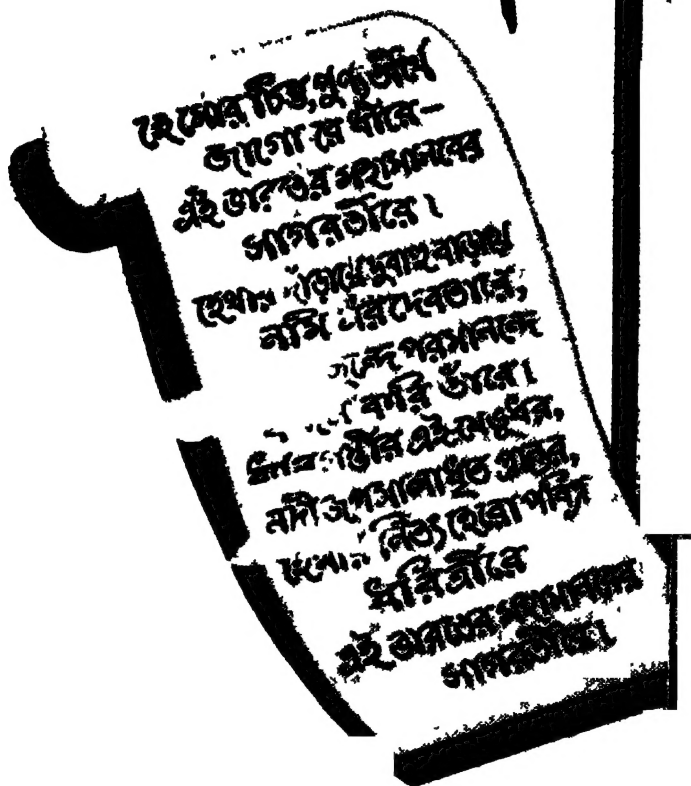 হে মোর চিত্ত, পুণ্য তীর্থে
জাগো রে ধীরে—
এই ভারতের মহামানবের
সাগরতীরে।
হেথায় দাঁড়ায়ে দু বাহু বাড়ায়ে
নমি নরদেবতারে,
ছন্দে পরমানন্দে
করি তাঁরে।
গম্ভীর এই যে ভূধর,
নদী জপমালাধৃত প্রান্তর,
হেথায় নিত্য হেরো পবিত্র
ধরিত্রীরে
এই ভারতের মহামানবের
সাগরতীরে।